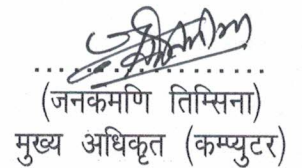 ....................
(जनकमणि तिम्सिना)
मुख्य अधिकृत (कम्प्युटर)